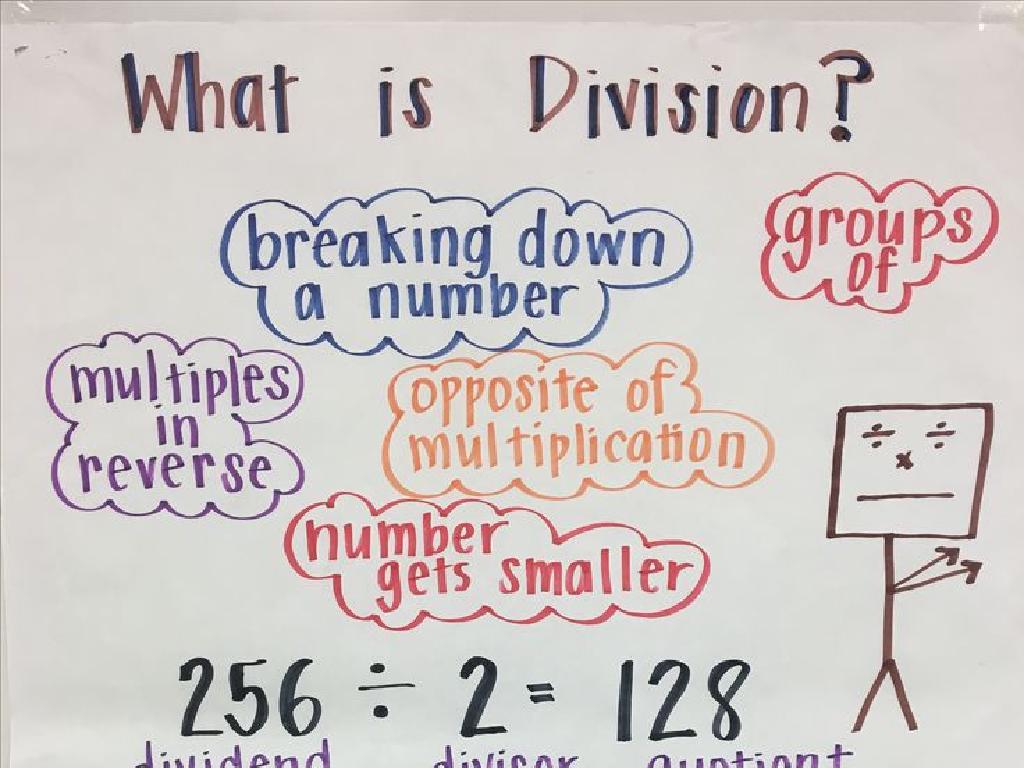 What is Division?
breaking down
a number
groups
of
multiples
in
reverse
opposite of
multiplication
number
gets smaller
÷ ÷
x
256 ÷ 2 = 128
dividend divisor quotient